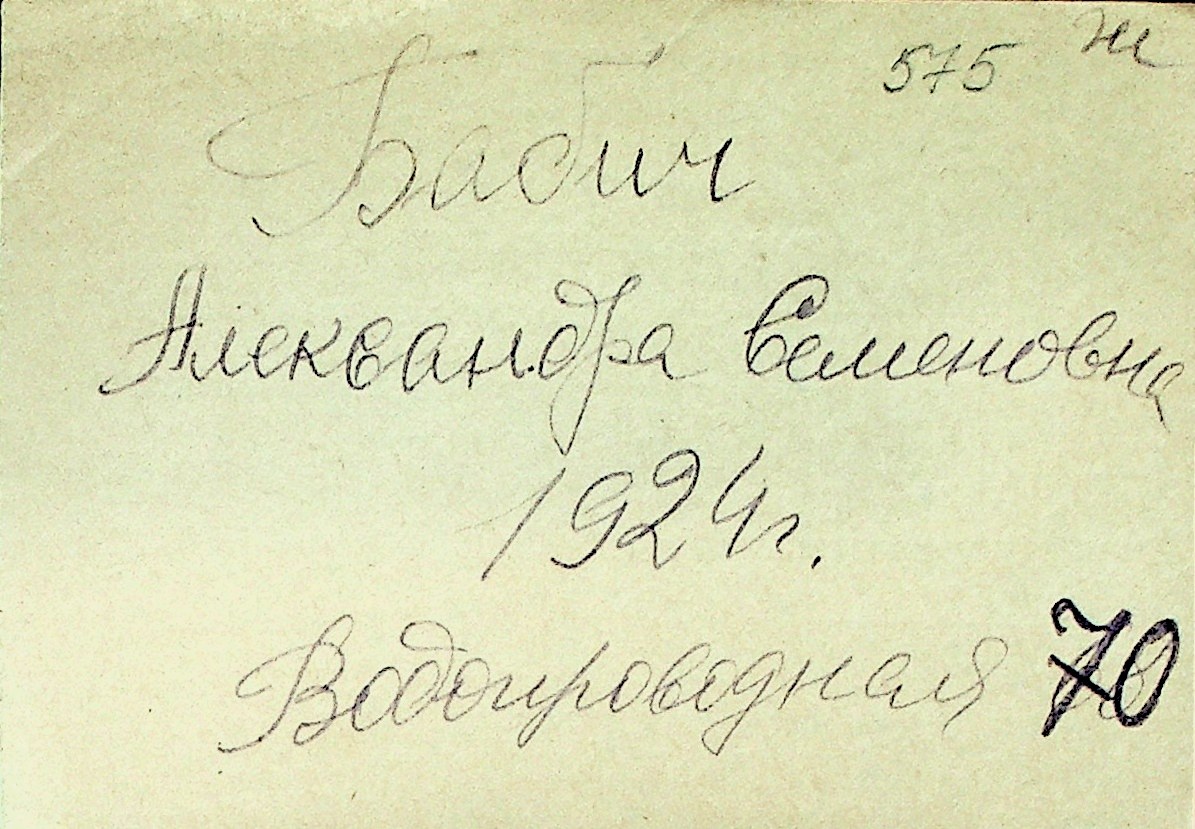 575 ж
Бабич
Александра Семеновна
1924г.
Водопроводная 70